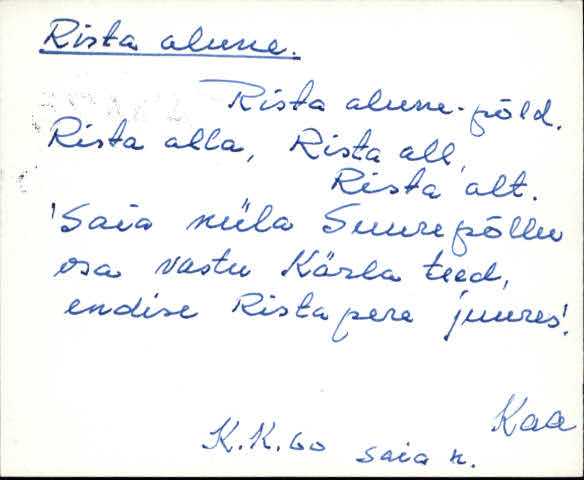 Rista alune.
Rista alune-põld.
Rista alla, Rista all,
Rista alt.
'Saia nüla Suurepõllu
osa vastu Kärla teed,
endise Rista pere juures'.
Kaa
K.K.60 Saia k.